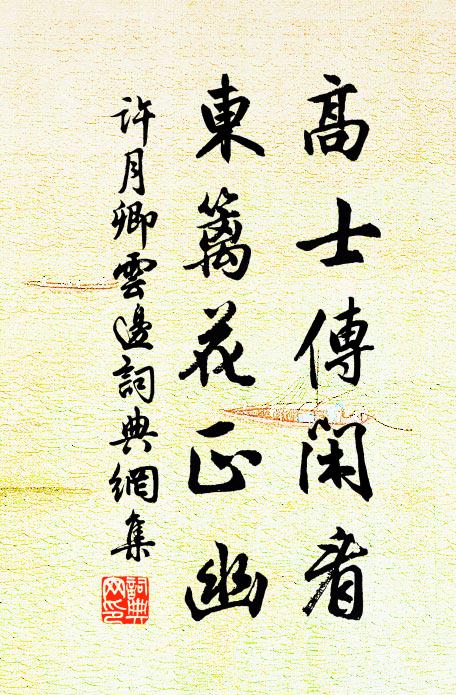 高士傳閑看
東籬花正幽
許月卿雲邊詞典網集
詞典网印